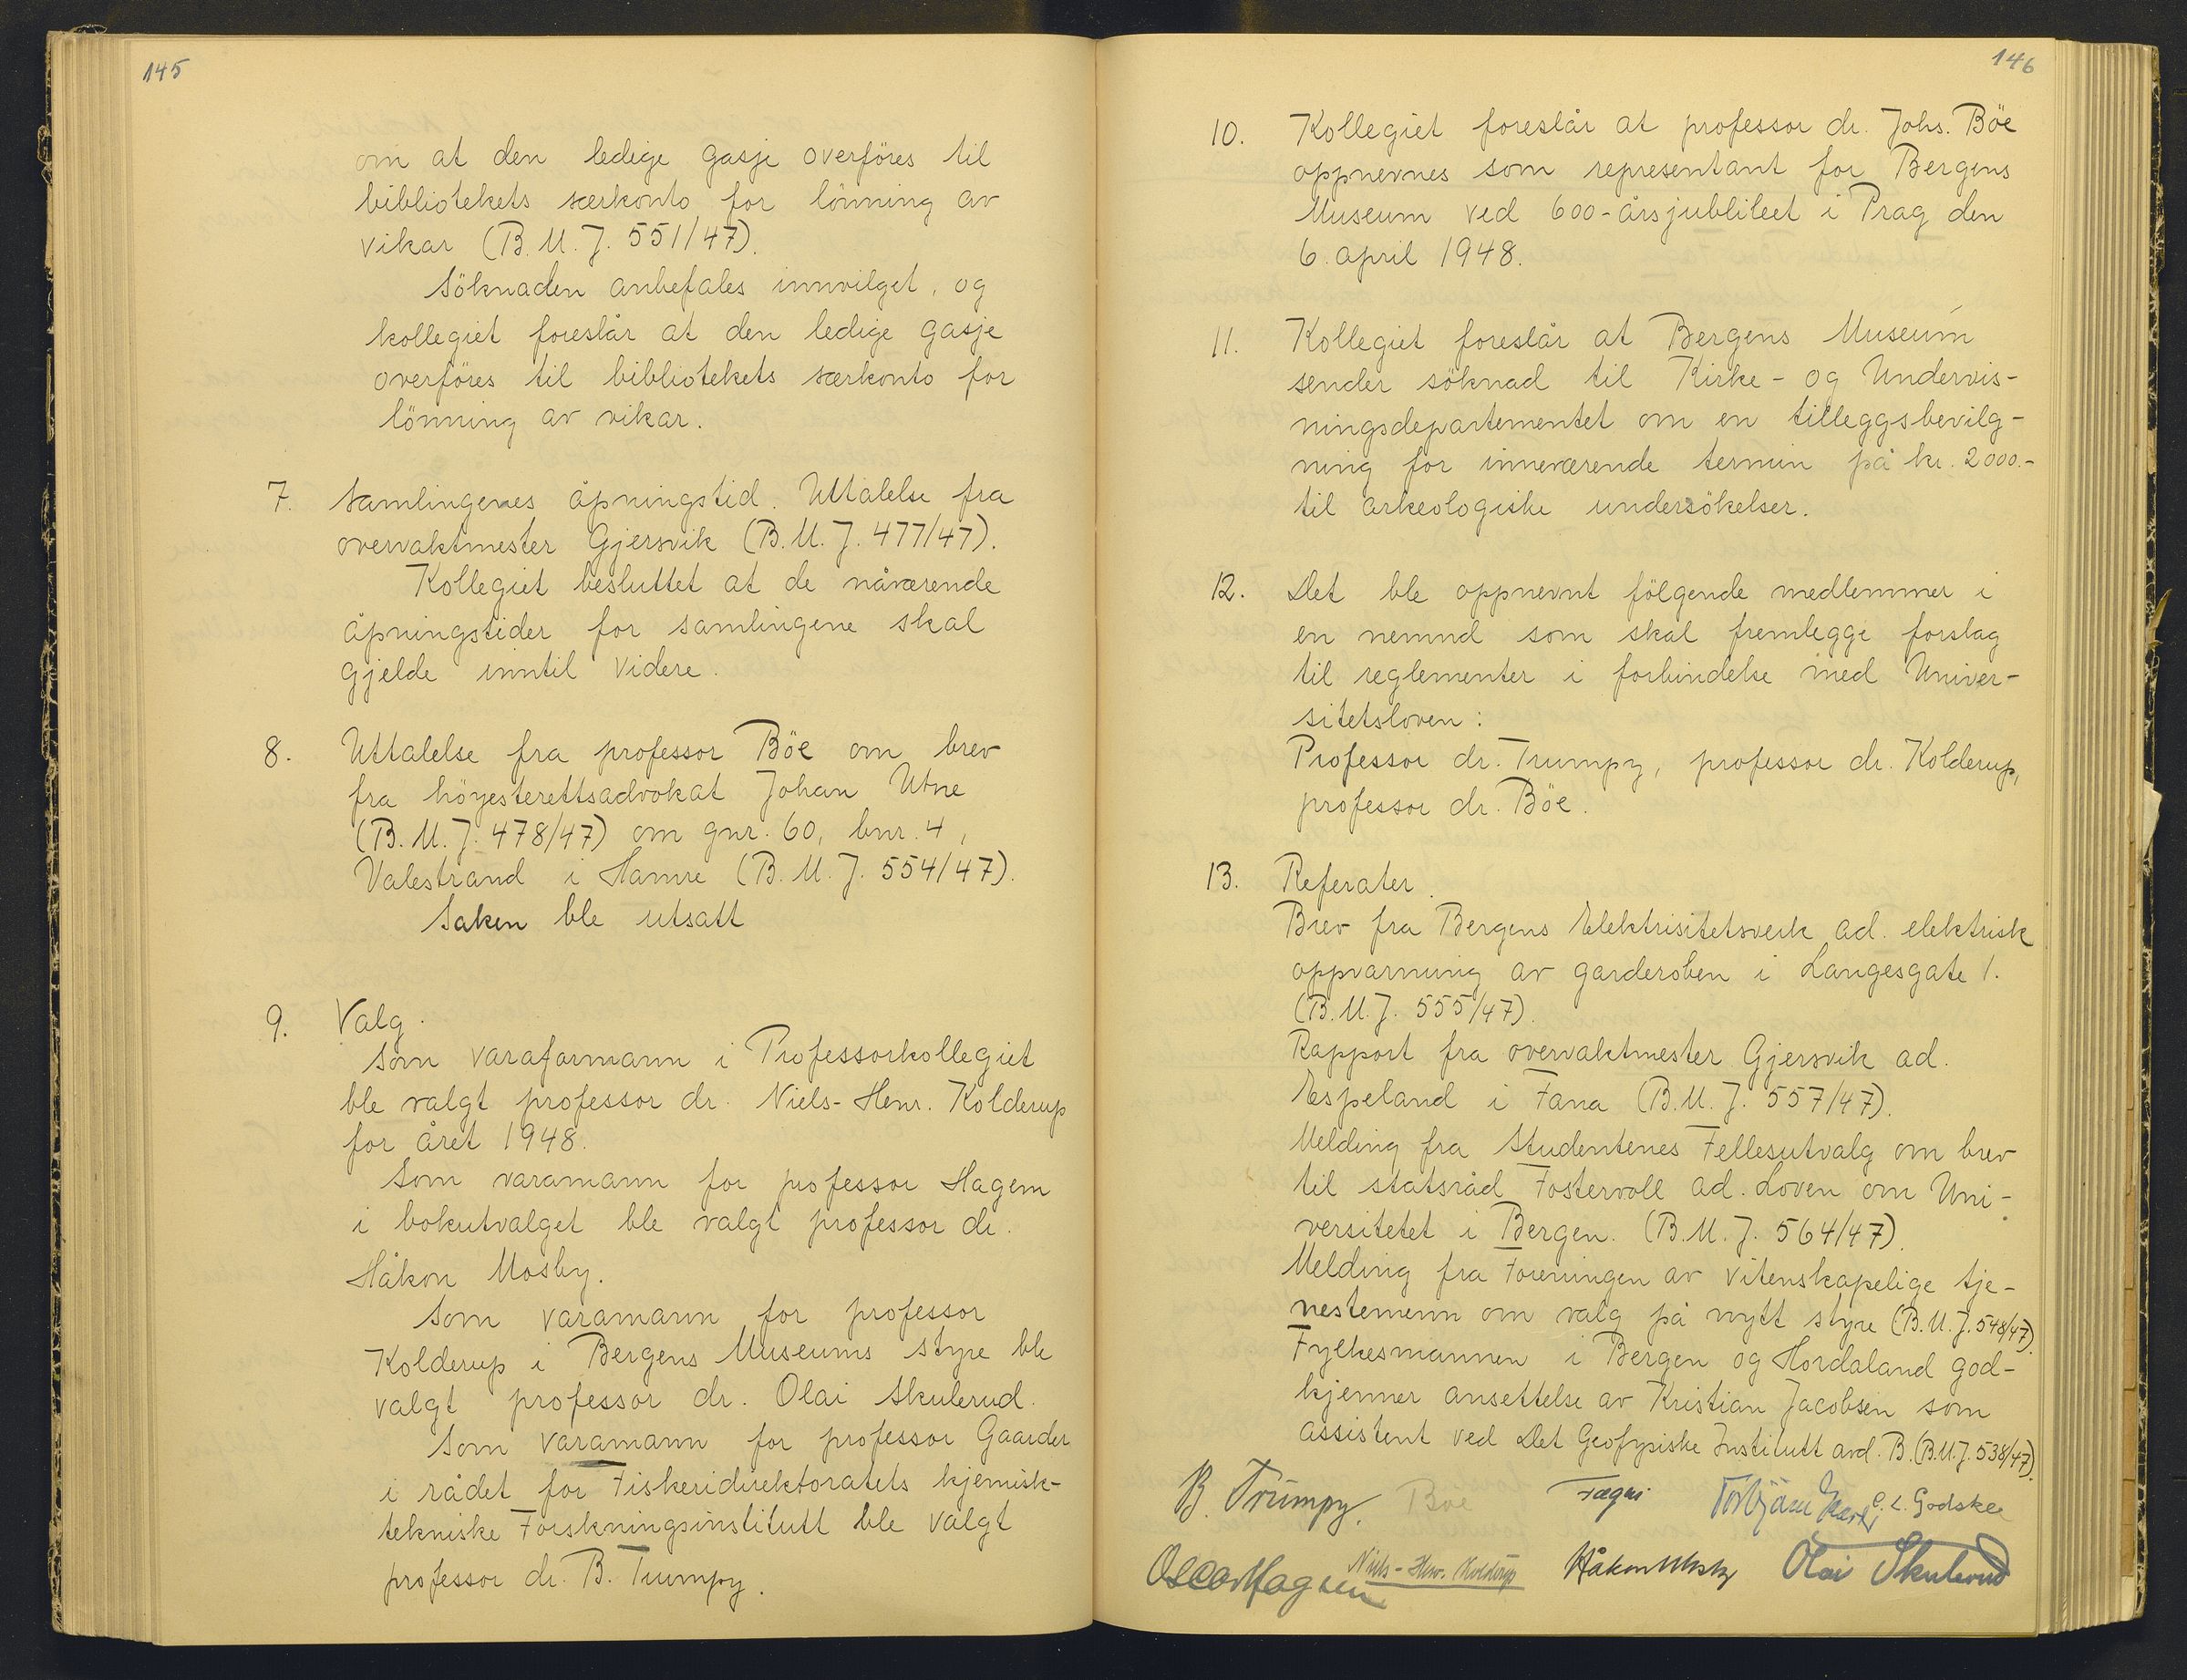 145
om at den ledige gasje overföres til
bibliotekets særkonto for lönning av
vikar (B.M.J. 551/47).
Söknaden anbefales innvilget, og
kollegiet foreslår at den ledige gasje
overföres til bibliotekets særkonto for
lönning av vikar.
7. Samlingenes åpningstid. Uttalelse fra
overvaktmester Gjersvik (B.M.J. 477/47).
Kollegiet besluttet at de nåværende
åpningstider for samlingene skal
gjelde inntil videre.
8. Uttalelse fra professor Böe om brev
fra höyesterettsadvokat Johan Utne
(B.M.J. 478/47) om gnr. 60, bnr. 4,
Valestrand i Hamre (B.M.J. 554/47).
Saken ble utsatt
9. Valg.
Som varaformann i Professorkollegiet
ble valgt professor dr. Niels-Henr. Kolderup
for året 1948.
Som varamann for professor Hagem
i bokutvalget ble valgt professor dr.
Håkon Mosby.
Som varamann for professor
Kolderup i Bergens Museums styre ble
valgt professor dr. Olai Skulerud.
Som varamann for professor Gaarder
i rådet for Fiskeridirektoratets kjemisk-
tekniske Forskningsinstitutt ble valgt
professor dr. B. Trumpy.
146
10. Kollegiet foreslår at professor dr. Johs. Böe
oppnevnes som representant for Bergens
Museum ved 600-årsjublileet i Prag den
6. april 1948.
11. Kollegiet foreslår at Bergens Museum
sender söknad til Kirke- og Undervis-
ningsdepartementet om en tilleggsbevilg-
ning for inneværende termin på kr. 2000.-
til arkeologiske undersökelser.
12. Det ble oppnevnt fölgende medlemmer i
en nemnd som skal fremlegge forslag
til reglementer i forbindelse med Univer-
sitetsloven:
Professor dr. Trumpy, professor dr. Kolderup,
professor dr. Böe.
13. Referater.
Brev fra Bergens Elektrisitetsverk ad. elektrisk
oppvarming av garderoben i Langesgate 1.
(B.M.J. 555/47).
Rapport fra overvaktmester Gjersvik ad.
Espeland i Fana (B.M.J. 557/47).
Melding fra Studentenes Fellesutvalg om brev
til statsråd Fostervoll ad. Loven om Uni-
versitetet i Bergen. (B.M.J. 564/47).
Melding fra Foreningen av vitenskapelige tje-
nestemenn om valg på nytt styre (B.M.J. 548/47).
Fylkesmannen i Bergen og Hordaland god-
kjenner ansettelse av Kristian Jacobsen som
assistent ved Det Geofysiske Institutt avd. B. (B.M.J. 538/47).
B. Trumpy. Böe Fægri Torbjörn C. L. Godske
Oscar Hagem Niels-Henr. Kolderup Håkon Mosby Olai Skulerud